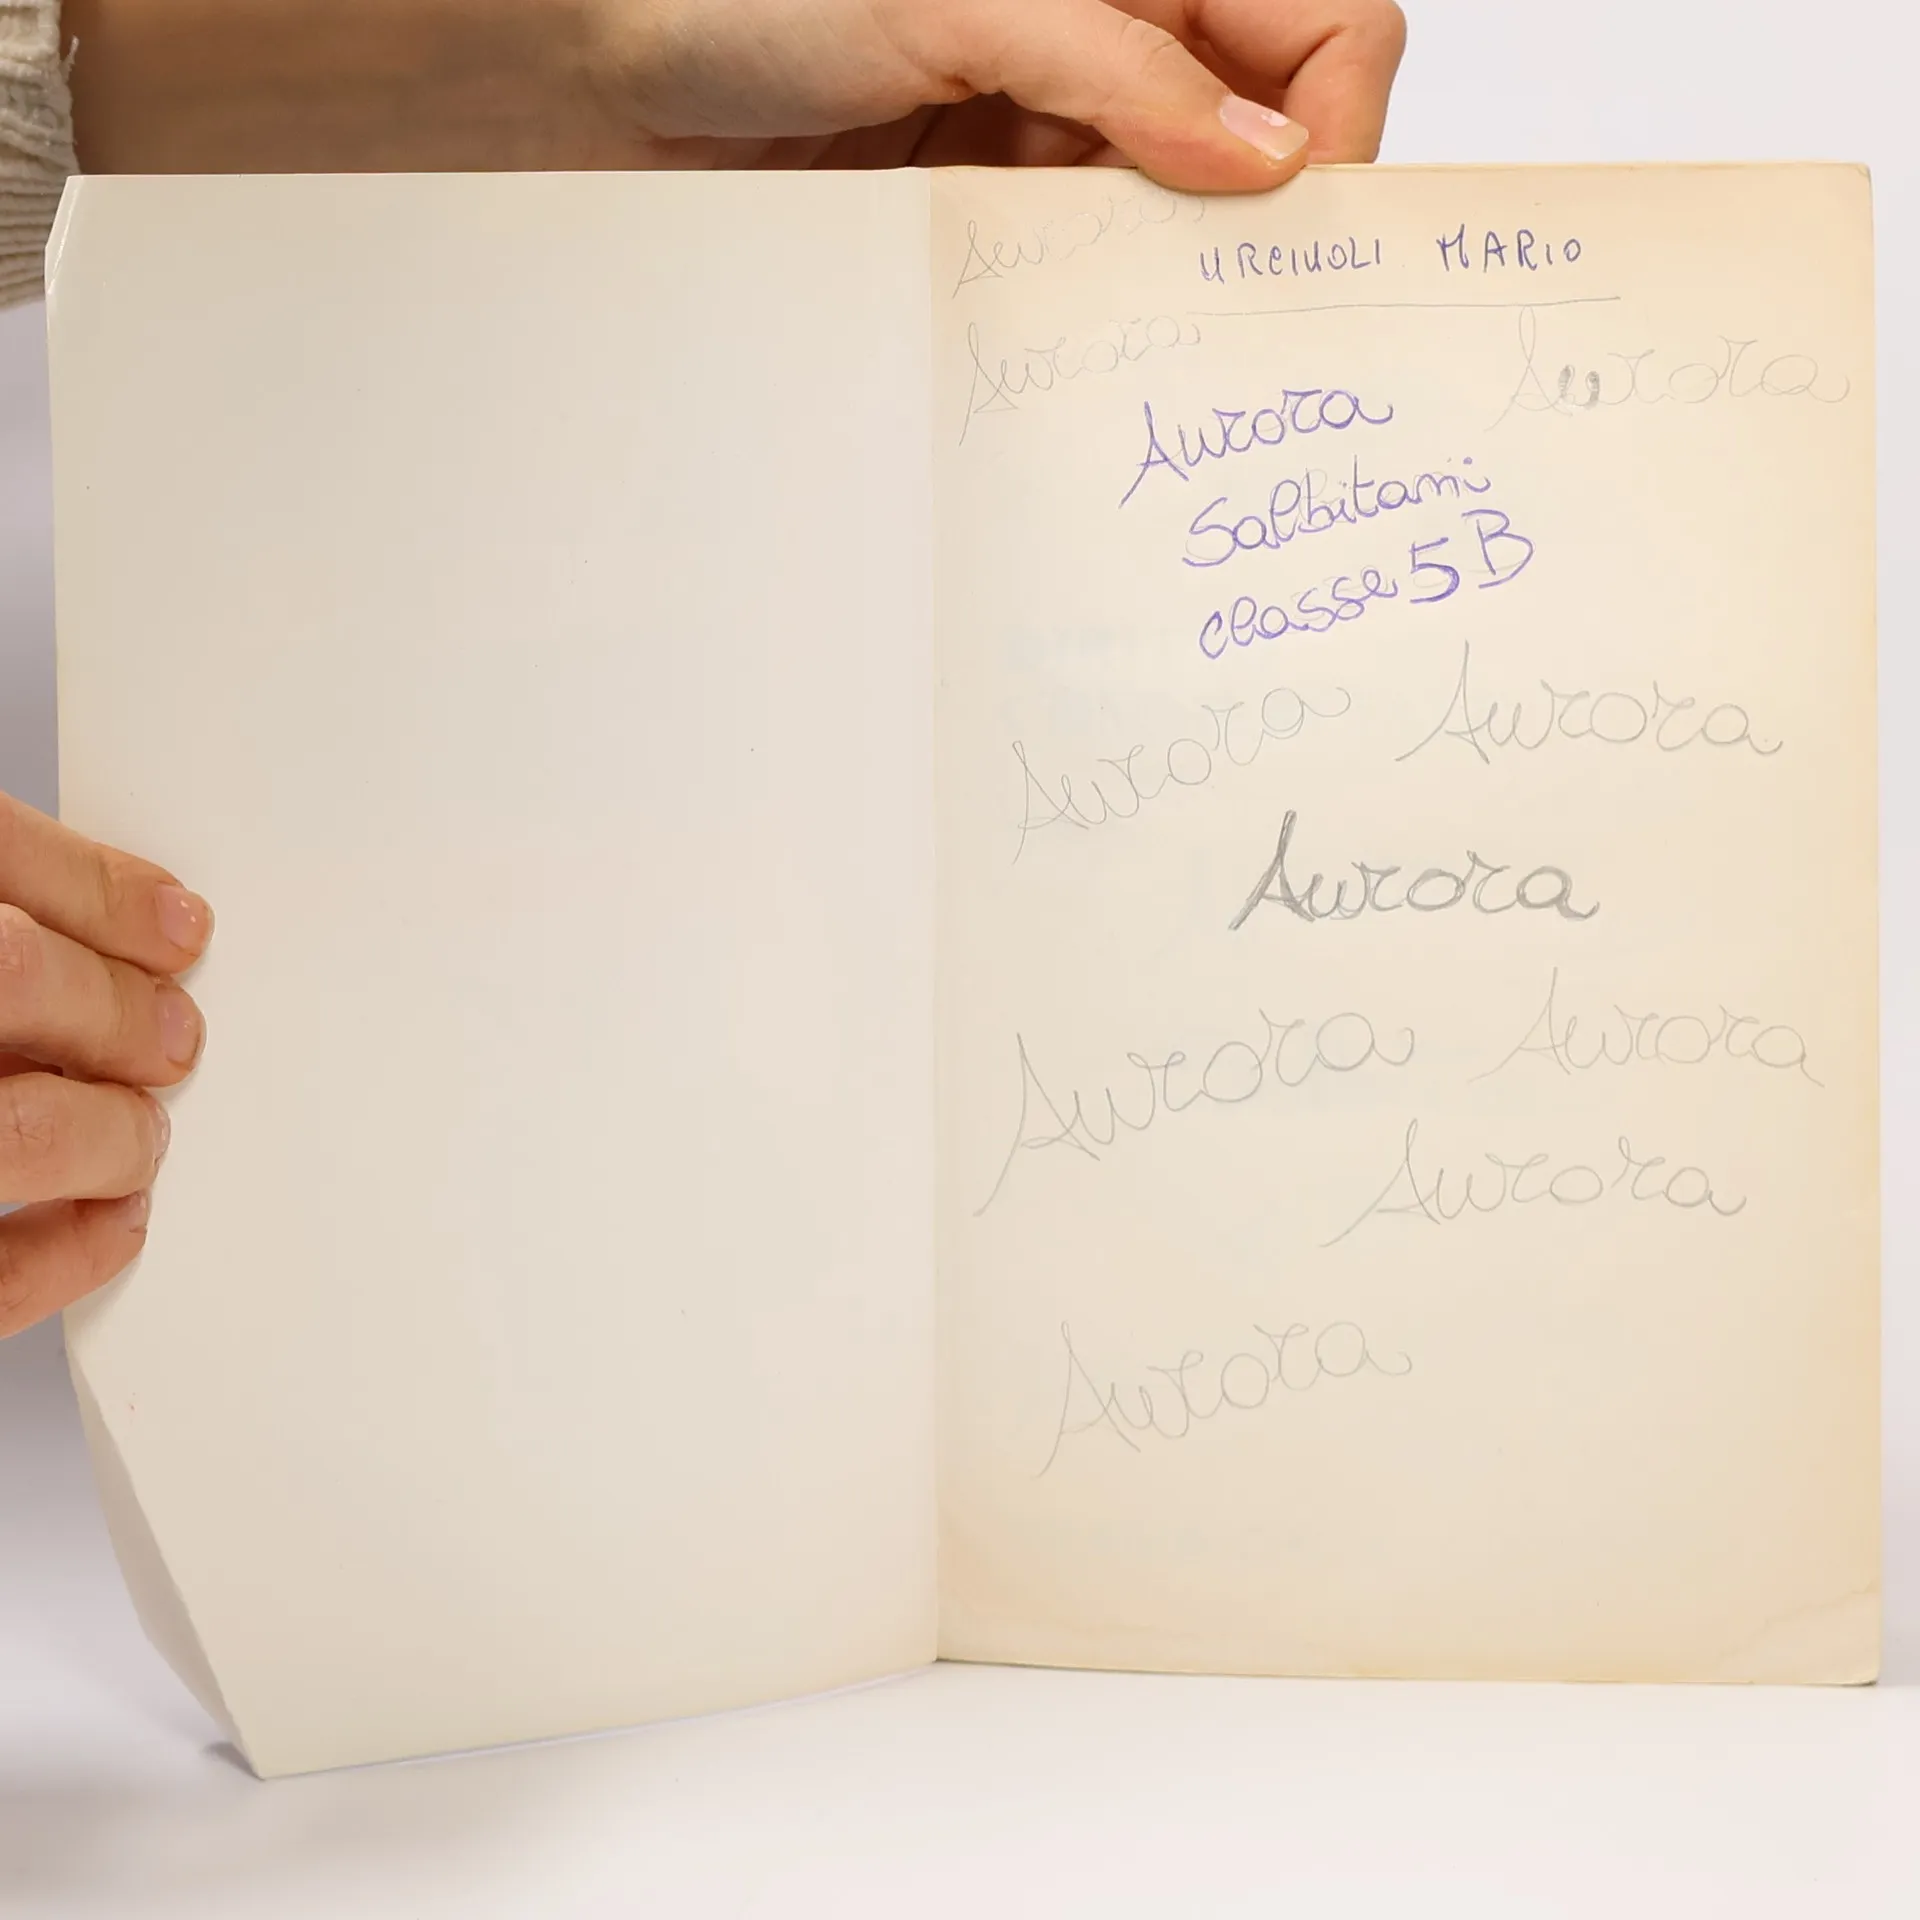 Aurora
URCIUOLI MARIO
Aurora
Aurora
Aurora
Salbitani
classe 5B
Aurora
Aurora
Aurora
Aurora
Aurora
Aurora
Aurora